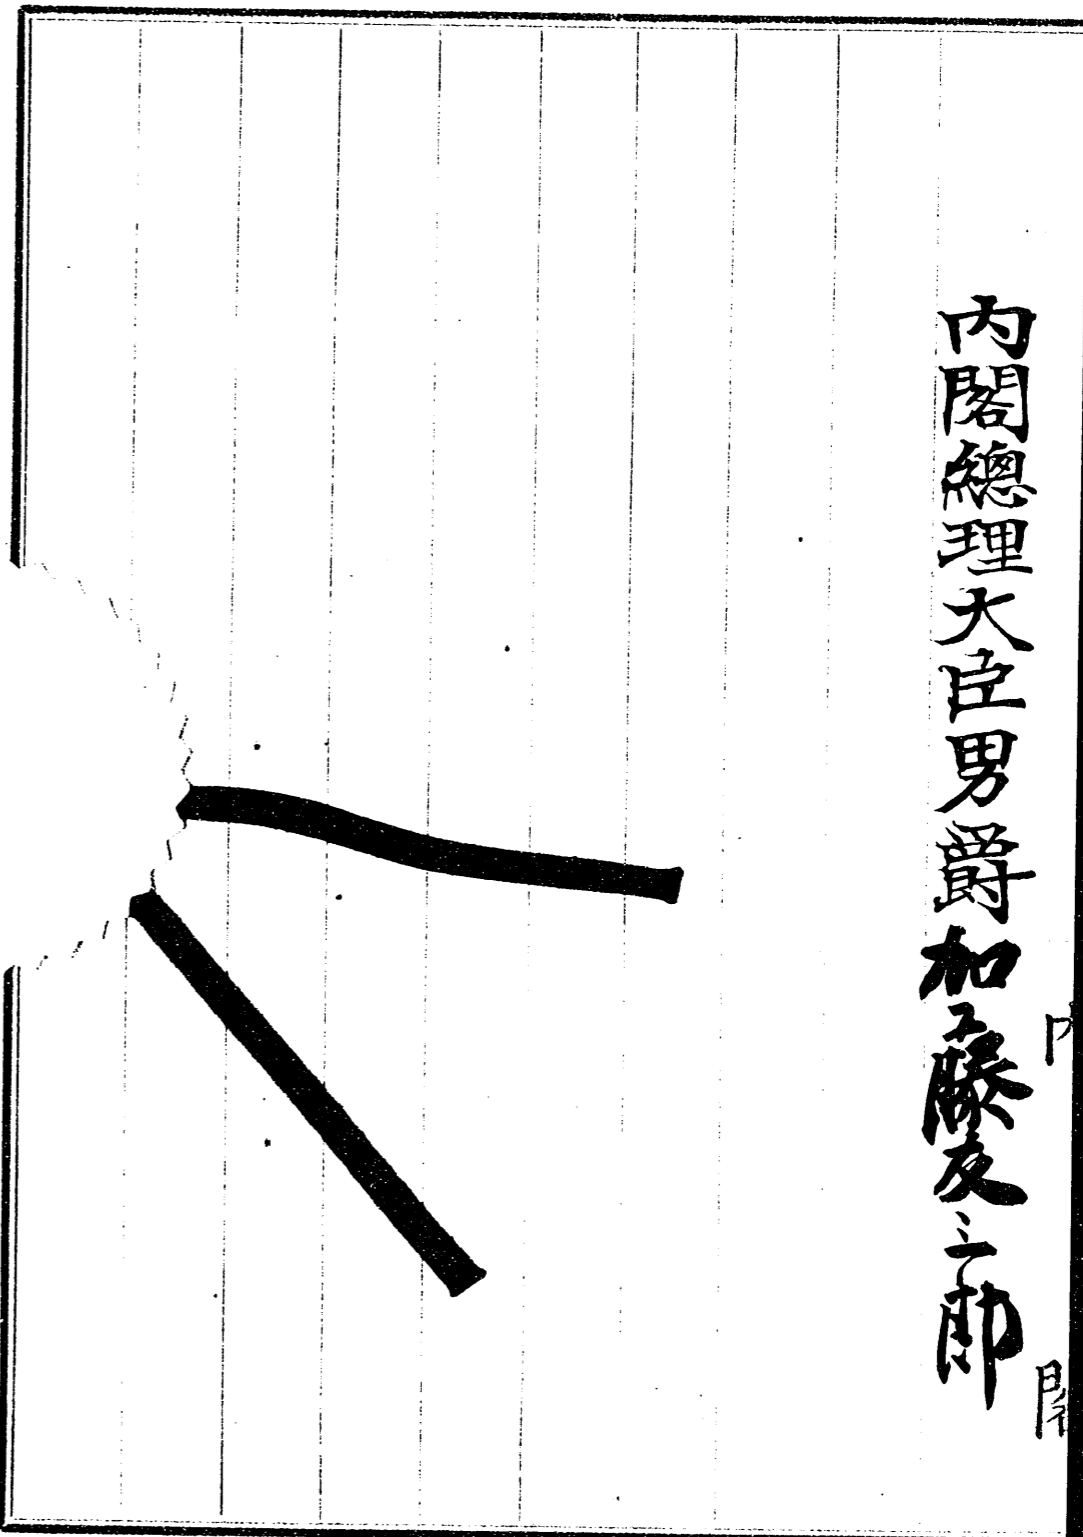 內閣總理大臣男爵加藤友三郎
內
閣